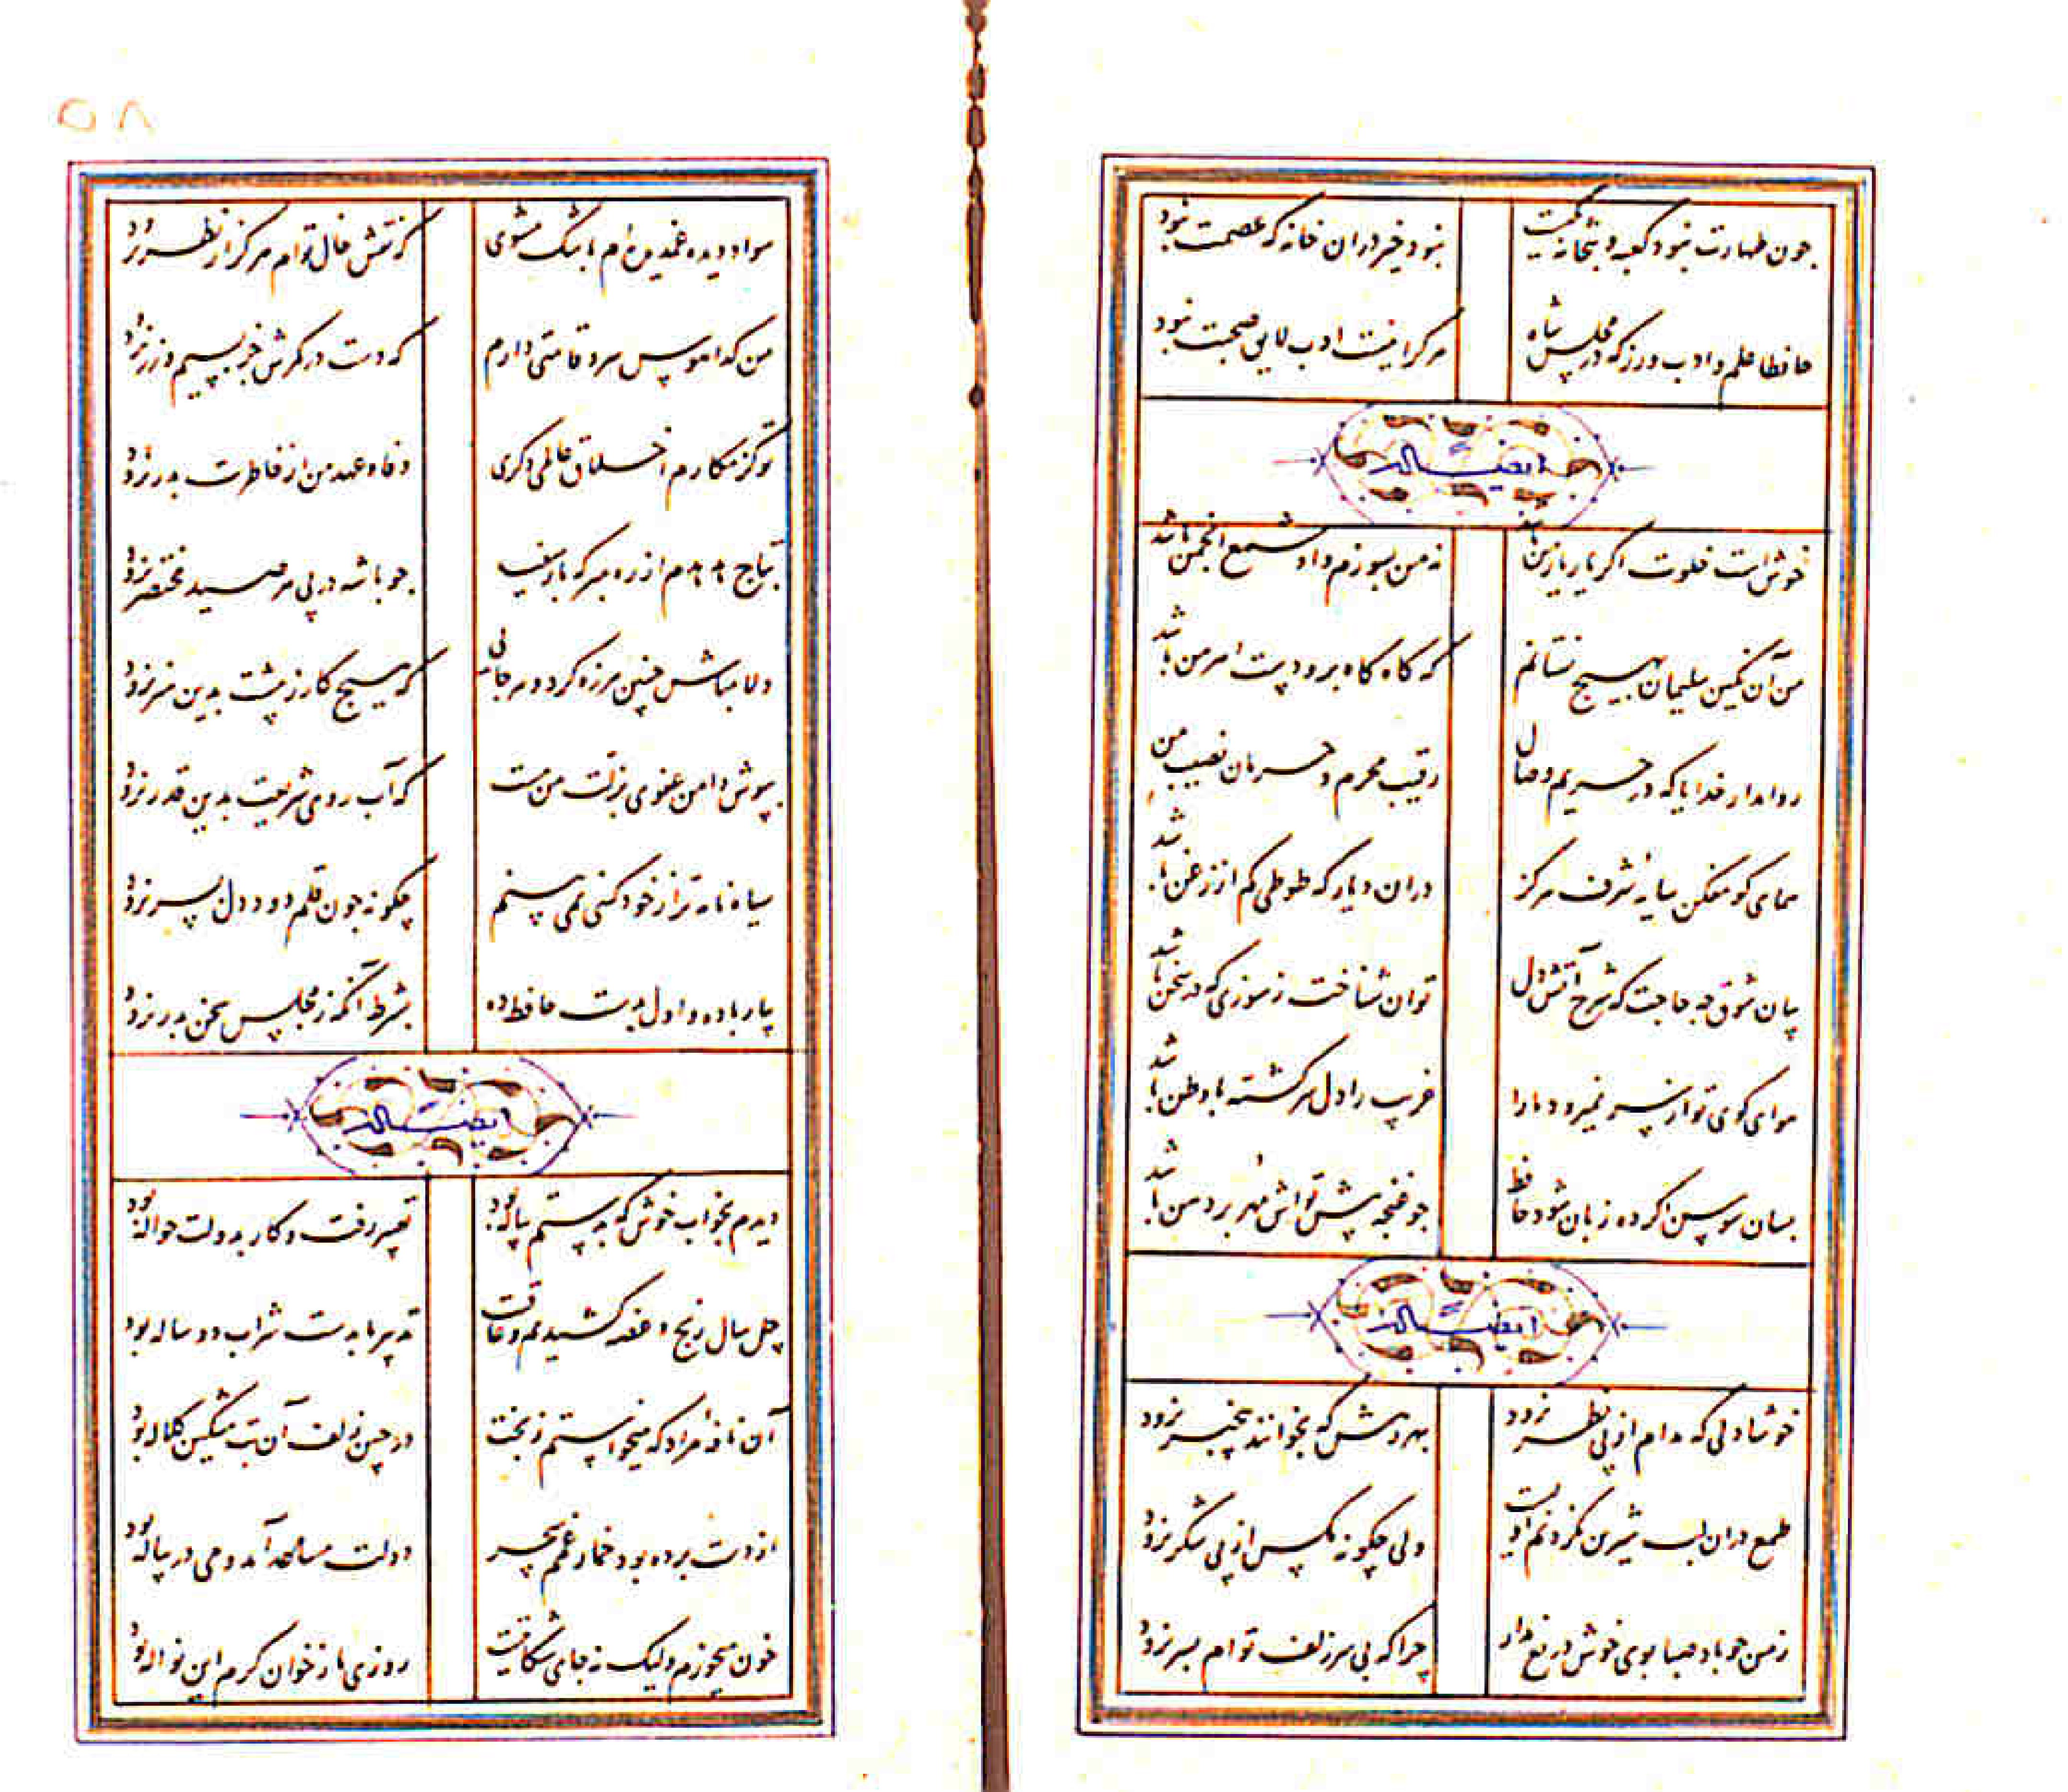 جون طهارت نبود کعبه و بتخانه یکیست    نبود خیر دران خانه که عصمت نبود
حافظا علم و ادب ورز که در مجلس شاه    هر کرا نیست ادب لایق صحبت نبود
ایضاً له
خوش است خلوت اکر یار یار من باشد    نه من بسوزم و او شمع انجمن باشد
من آن نکین سلیمان بهیچ نستانم    که کاه کاه برو دست اهرمن باشد
روا مدار خدایا که در حریم وصال    رقیب محرم و حرمان نصیب من باشد
همای کو مفکن سایهٔ شرف هرکز    دران دیار که طوطی کم از زغن باشد
بیان شوق چه حاجت که شرح آتش دل    توان شناخت ز سوزی که در سخن باشد
هوای کوی تو از سر نمیرود ما را    غریب را دل سرکشته با وطن باشد
بسان سوسن اکر ده زبان شود حافظ    جو غنجه پیش تواش مهر بر دهن باشد
ایضاً له
خوشا دلی که مدام از پی نظر نرود    بهر درش که بخوانند بیخبر نرود
طمع دران لب شیرین نکردنم اولیست    ولی چکونه مکس از پی شکر نرود
ز من جو باد صبا بوی خوش دریغ مدار    چرا که بی سر زلف توام بسر نرود
۵۸
سواد دیده غمدیده‌ام باشک مشوی    که نقش خال توام هرکز از نظر نرود
من کدا هوس سرو قامتی دارم    که دست در کمرش جز بسیم و زر نرود
تو کز مکارم اخلاق عالمی دکری    وفاء عهد من از خاطرت بدر نرود
بتاج هدهدم از ره مبر که باز سفید    جو باشه در پی هر صید مختصر نرود
دلا مباش جنین هرزه کرد و هرجائی    که هیج کار ز پیشت بدین هنر نرود
بپوش دامن عفوی بزلت من مست    که آب روی شریعت بدین قدر نرود
سیاه نامه‌تر از خود کسی نمی‌بینم    چکونه جون قلمم دود دل بسر نرود
بیار باده و اول بدست حافظ ده    بشرط آنکه ز مجلس سخن بدر نرود
ایضاً له
دیدم بخواب خوش که بدستم پیاله بود    تعبیر رفت و کار بدولت حواله بود
چل سال رنج و غصه کشیدیم و عاقبت    تدبیر ما بدست شراب دو ساله بود
آن نافه مراد که میخواستم ز بخت    در چین زلف آن بت مشکین کلاله بود
از دست برده بود خمار غمم سحر    دولت مساعد آمد و می در پیاله بود
خون میخورم ولیک نه جای شکایتست    روزی ما ز خوان کرم این نواله بود